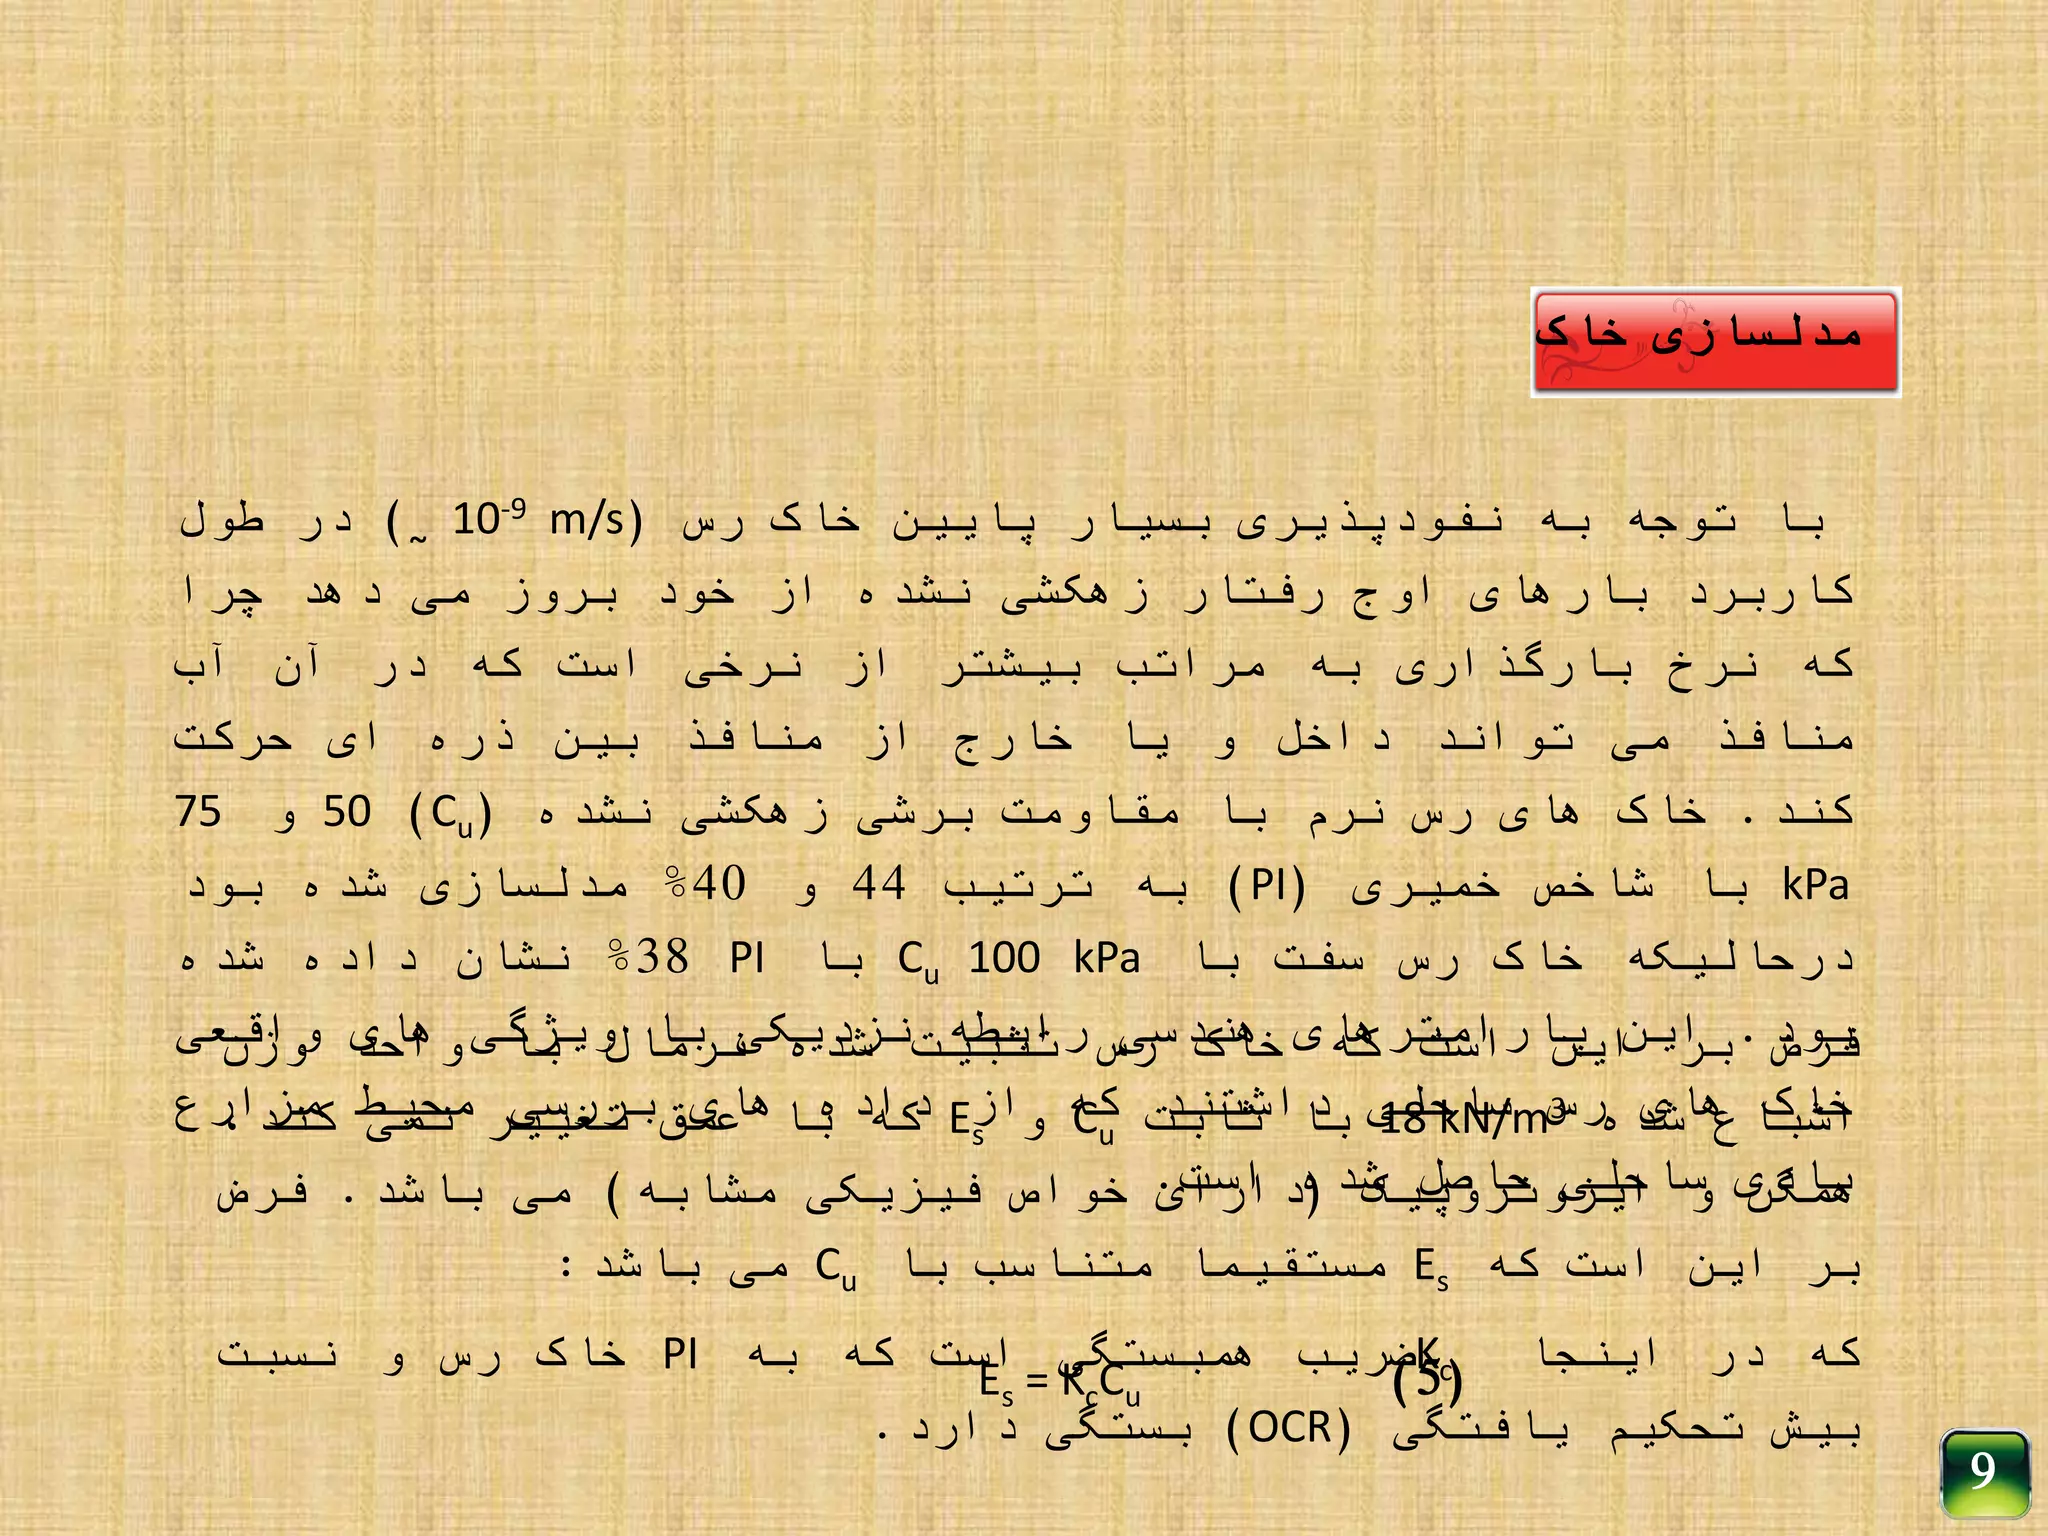 مدلسازی خاک
با توجه به نفودپذیری بسیار پایین خاک رس (10-9 m/s ~) در طول
کاربرد بارهای اوج رفتار زهکشی نشده از خود بروز می دهد چرا
که نرخ بارگذاری به مراتب بیشتر از نرخی است که در آن آب
منافذ می تواند داخل و یا خارج از منافذ بین ذره ای حرکت
کند. خاک های رس نرم با مقاومت برشی زهکشی نشده (Cu) 50 و 75
kPa با شاخص خمیری (PI) به ترتیب 44 و 40% مدلسازی شده بود
درحالیکه خاک رس سفت با Cu 100 kPa با PI 38% نشان داده شده
بود. این پارامترهای هندسی رابطه نزدیکی با ویژگی های واقعی
خاک های رس ساحلی داشتند که از داده های بررسی محیط مزارع
بادی ساحلی حاصل شده است.
فرض بر این است که خاک رس تثبیت شده نرمال با واحد وزن
اشباع شده 18 kN/m3 با ثابت Cu و Es که با عمق تغییر نمی کند.
همگن و ایزوتروپیک (دارای خواص فیزیکی مشابه) می باشد. فرض
بر این است که Es مستقیما متناسب با Cu می باشد:
Es = KcCu (5)
که در اینجا Kc ضریب همبستگی است که به PI خاک رس و نسبت
بیش تحکیم یافتگی (OCR) بستگی دارد.
9